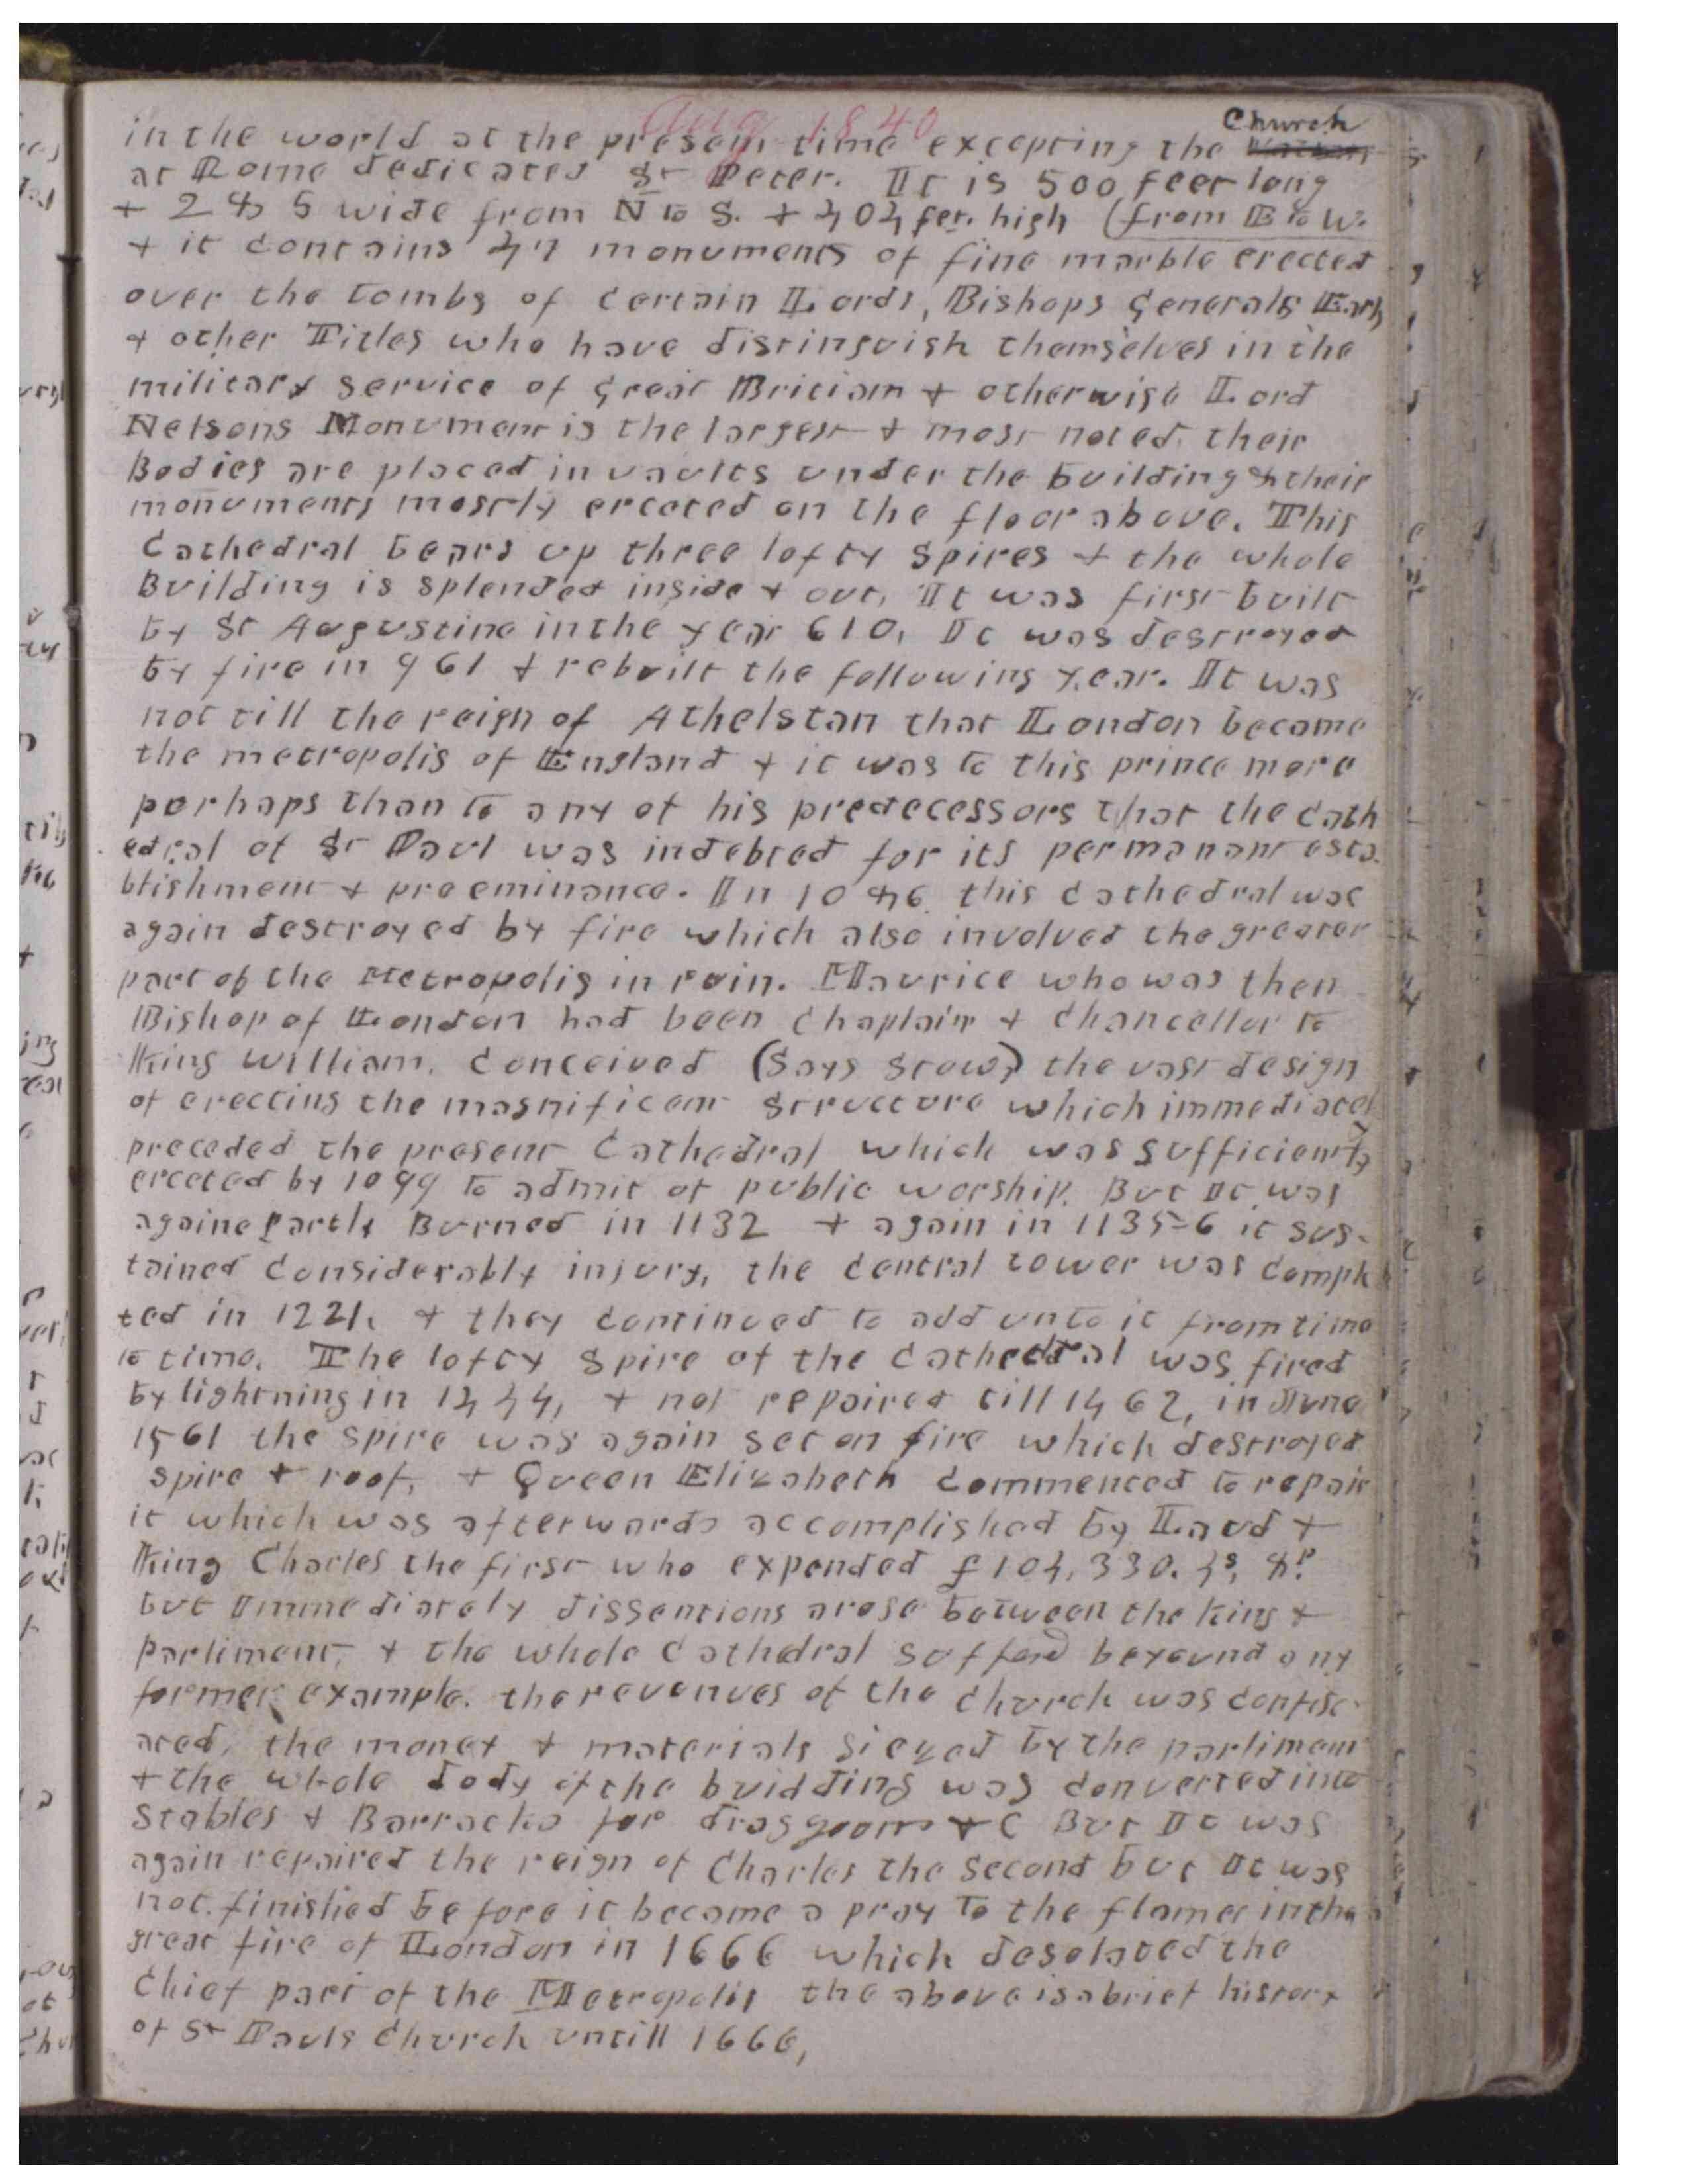 Aug 1840
in the world at the present time excepting the Church
at Rome dedicated St Peter. It is 500 feet long
+ 285 wide from N to S. + 404 fet. high (from E to W.
+ it contains 47 monuments of fine marble erected
over the tombs of certain Lords, Bishops Generals Earls
+ other Titles who have distinguish themselves in the
military service of Great Britiam + otherwise Lord
Nelsons Monument is the largest + most noted. their
Bodies are placed in vaults under the building & their
monuments mostly erected on the floor above. This
Cathedral bears up three lofty spires + the whole
Building is splended inside + out, It was first built
by St Augustine in the year 610, It was destroyed
by fire in 961 + rebuilt the following year. It was
not till the reign of Athelstan that London became
the metropolis of England + it was to this prince more
perhaps than to any of his predecessors that the Cath
edral of St Paul was indebted for its permanant esta
blishment + preeminance. In 1086 this Cathedral was
again destroyed by fire which also involved the greater
part of the Metropolis in ruin. Maurice who was then
Bishop of London had been Chaplain + Chancellor to
King William. Conceived (Says Stow) the vast design
of erecting the magnificent structure which immediatel
preceded the present Cathedral which was sufficiently
erected by 1099 to admit of public worship. But It was
againe partly Burned in 1132 + again in 1135=6 it sus-
tained considerably injury, the central tower was comple
ted in 1221. + they continued to add unto it from time
to time. The lofty spire of the Cathedral was fired
by lightning in 1444, + not repaired till 1462, in June
1561 the spire was again set on fire which destroyed
spire + roof, + Queen Elizabeth commenced to repair
it which was afterwards accomplished by Laud +
King Charles the first who expended £104,330. 4s, 8p
but Immediately dissentions arose between the King +
parliment, + the whole Cathedral sufferd beyound any
former example. the revenues of the church was confisc
ated, the money + materials siezed by the parliment
+ the whole body of the buidding was converted into
Stables + Barracks for draggoons + C But It was
again repaired the reign of Charles the Second but It was
not finished before it became a pray to the flames in the
great fire of London in 1666 which desolated the
Chief part of the Metropolis the above is a brief history
of St Pauls Church untill 1666,